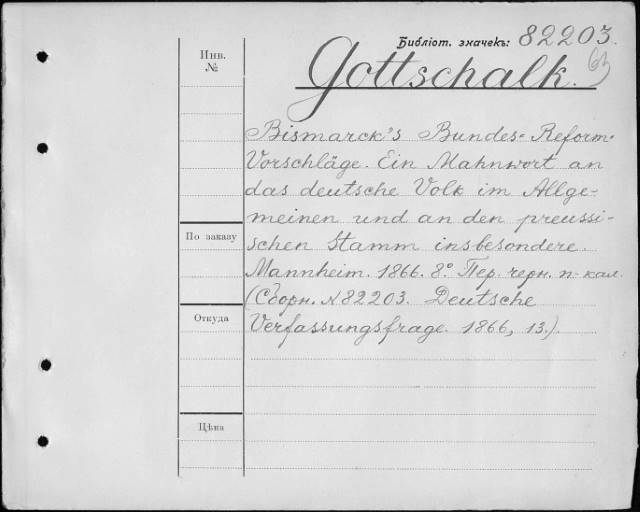 Библіот. значекъ: 82203.
63
Инв.
№
Gottschalk.
Bismarck's Bundes-Reform-
Vorschläge. Ein Mahnwort an
das deutsche Volk im Allge-
meinen und an den preussi-
schen Stamm insbesondere.
Mannheim. 1866. 8° Пер. черн. п. кал.
(Сборн. №82203. Deutsche
Verfassungsfrage. 1866, 13.)
По заказу
Откуда
Цѣна